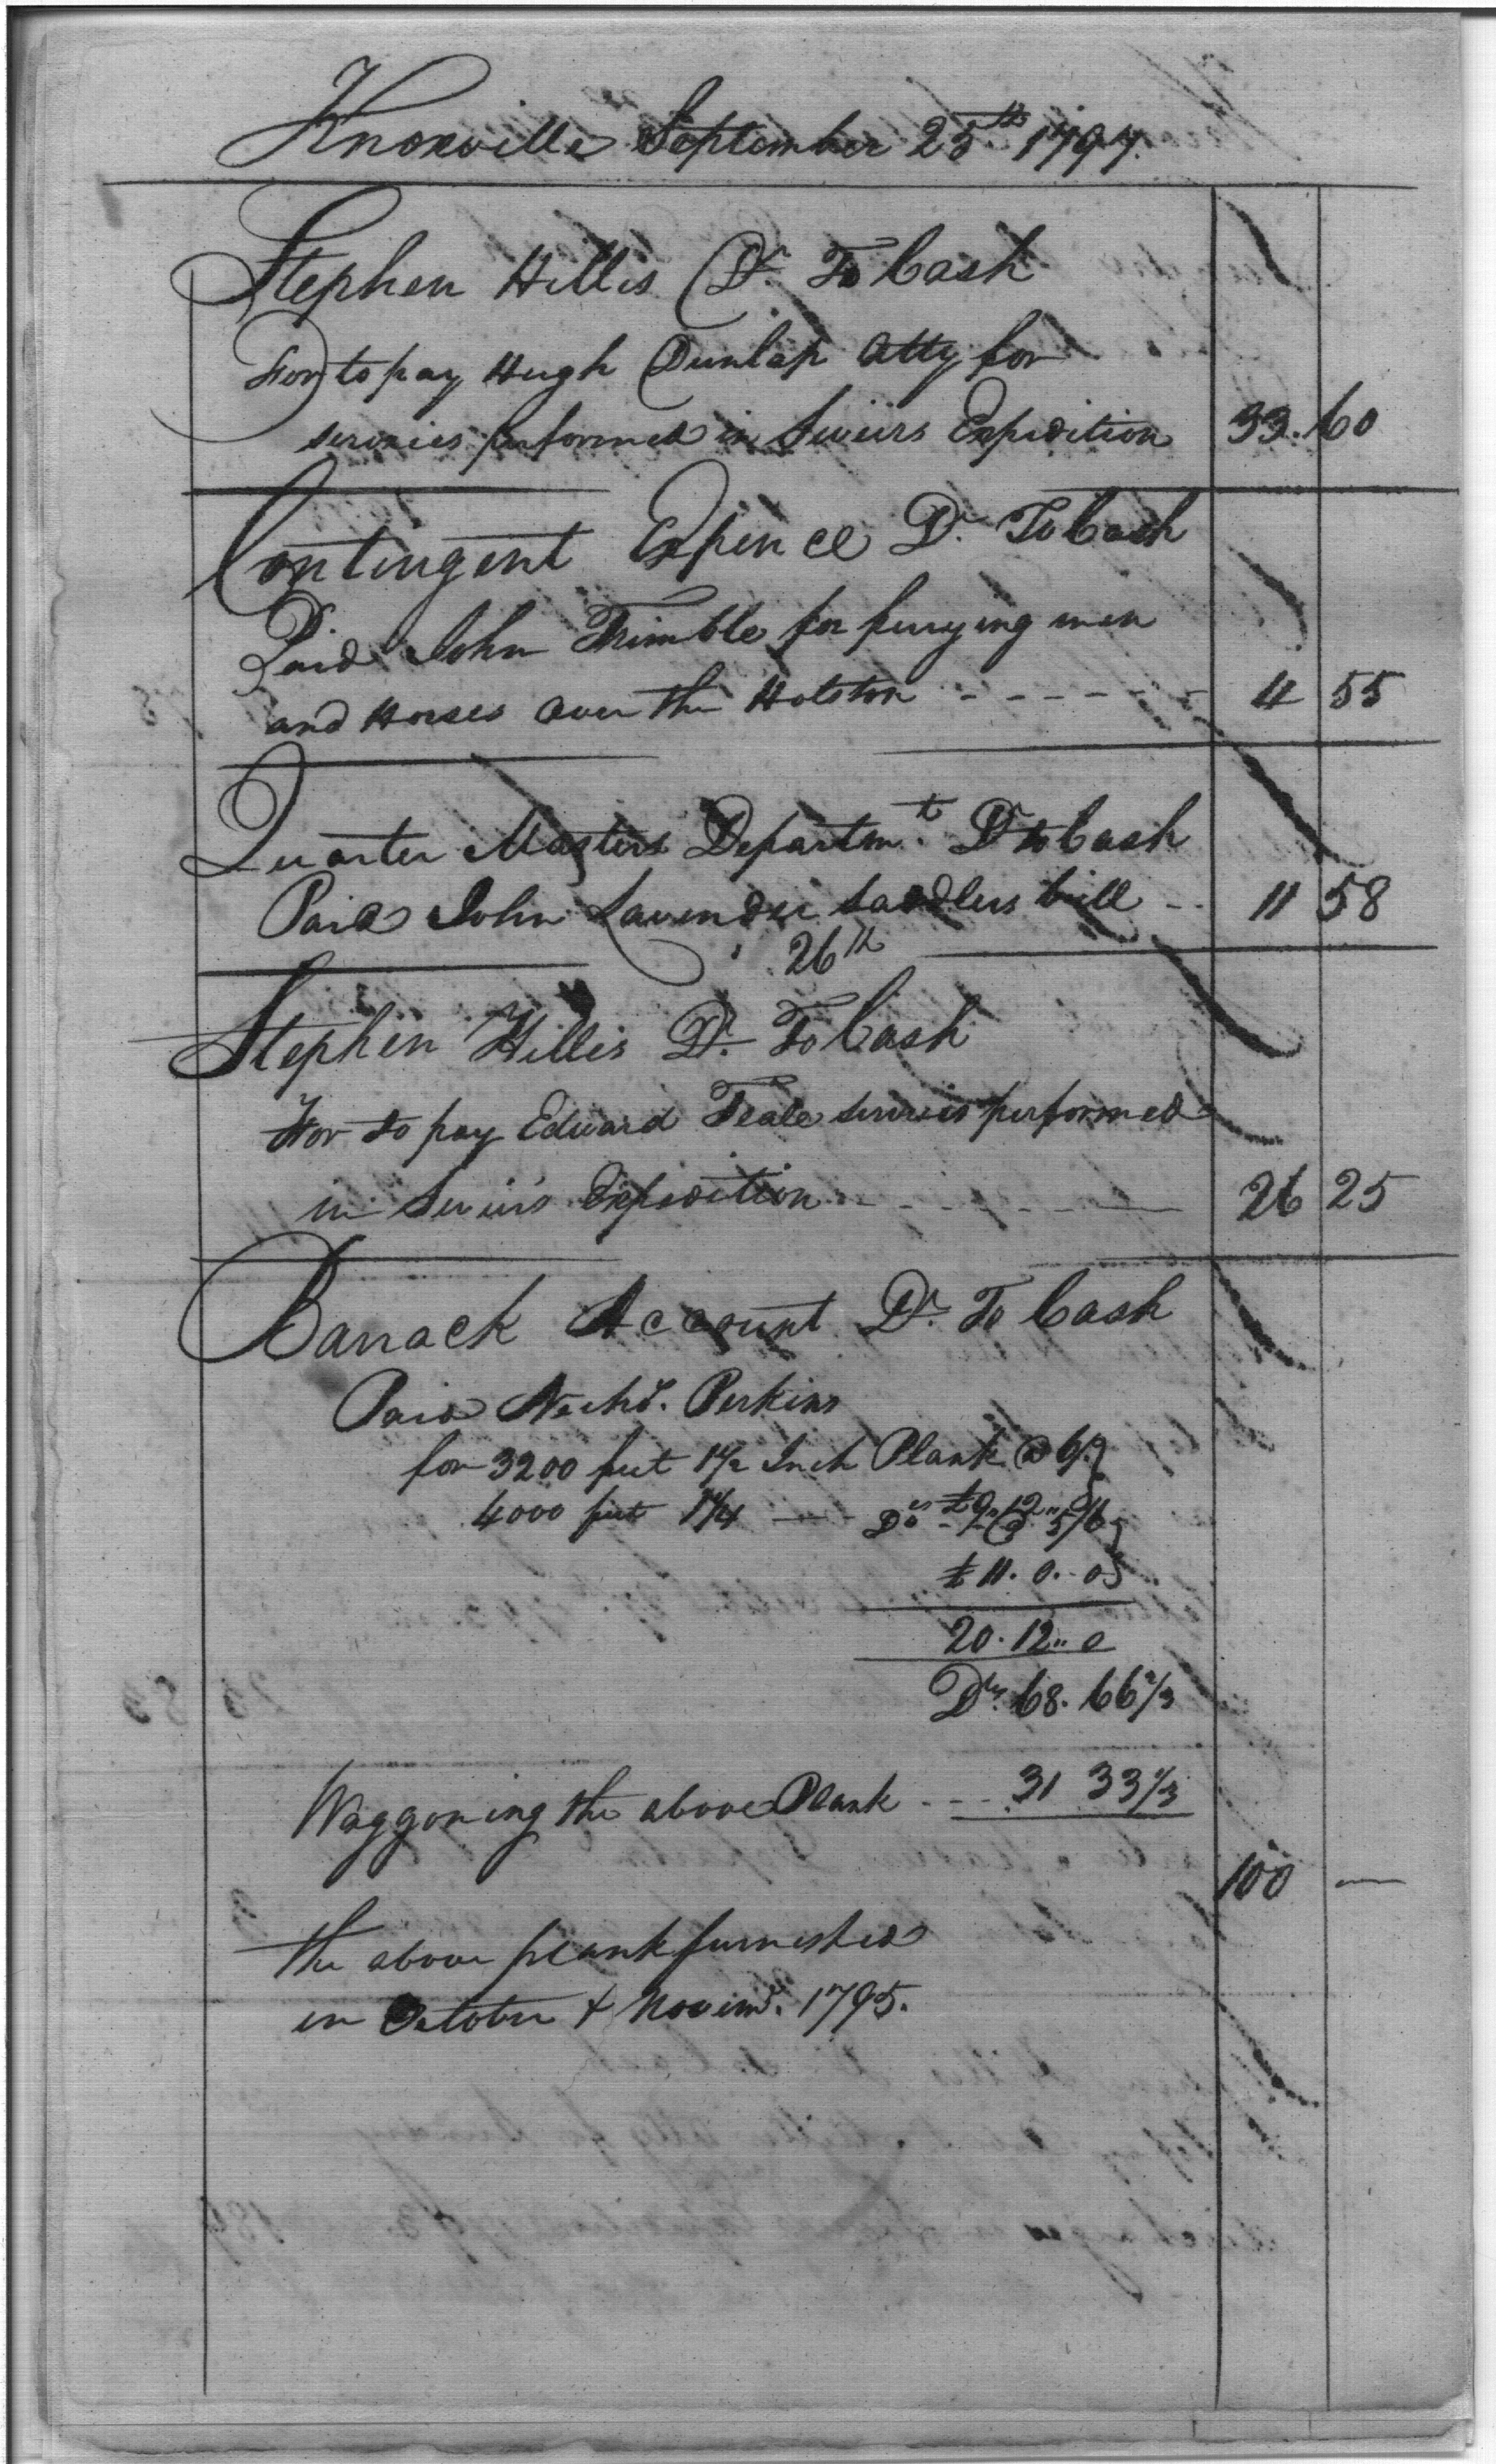 Knoxville September 25th 1797.
Stephen Hillis Dr. To Cash
For to pay Hugh Dunlap Atty for
services performed in Seviers Expedition 33. 60
Contingent Expence Dr. To Cash
Paid John Trimble for ferrying men
and Horses over the Holston - - - - - - 4 55
Quarter Masters Departmt. Dr to Cash
Paid John Lavender Saddlers bill - - 11 58
26th
Stephen Hillis Dr. To Cash
For to pay Edward Teale services performed
in Seviers Expedition - - - - - - 26 25
Barrack Account Dr. To Cash
Paid Nichs. Perkins
for 3200 feet 1 1/2 Inch Plank @ 6/
£9,,12,,0
4000 feet 1 1/4 — Do @ 5/6
£11. 0. - 0
20. 12,, 0
Drs. 68. 66 2/3
Waggoning the above Plank - - - 31 33 1/3
100 —
the above plank furnished
in October & Novemr. 1795.